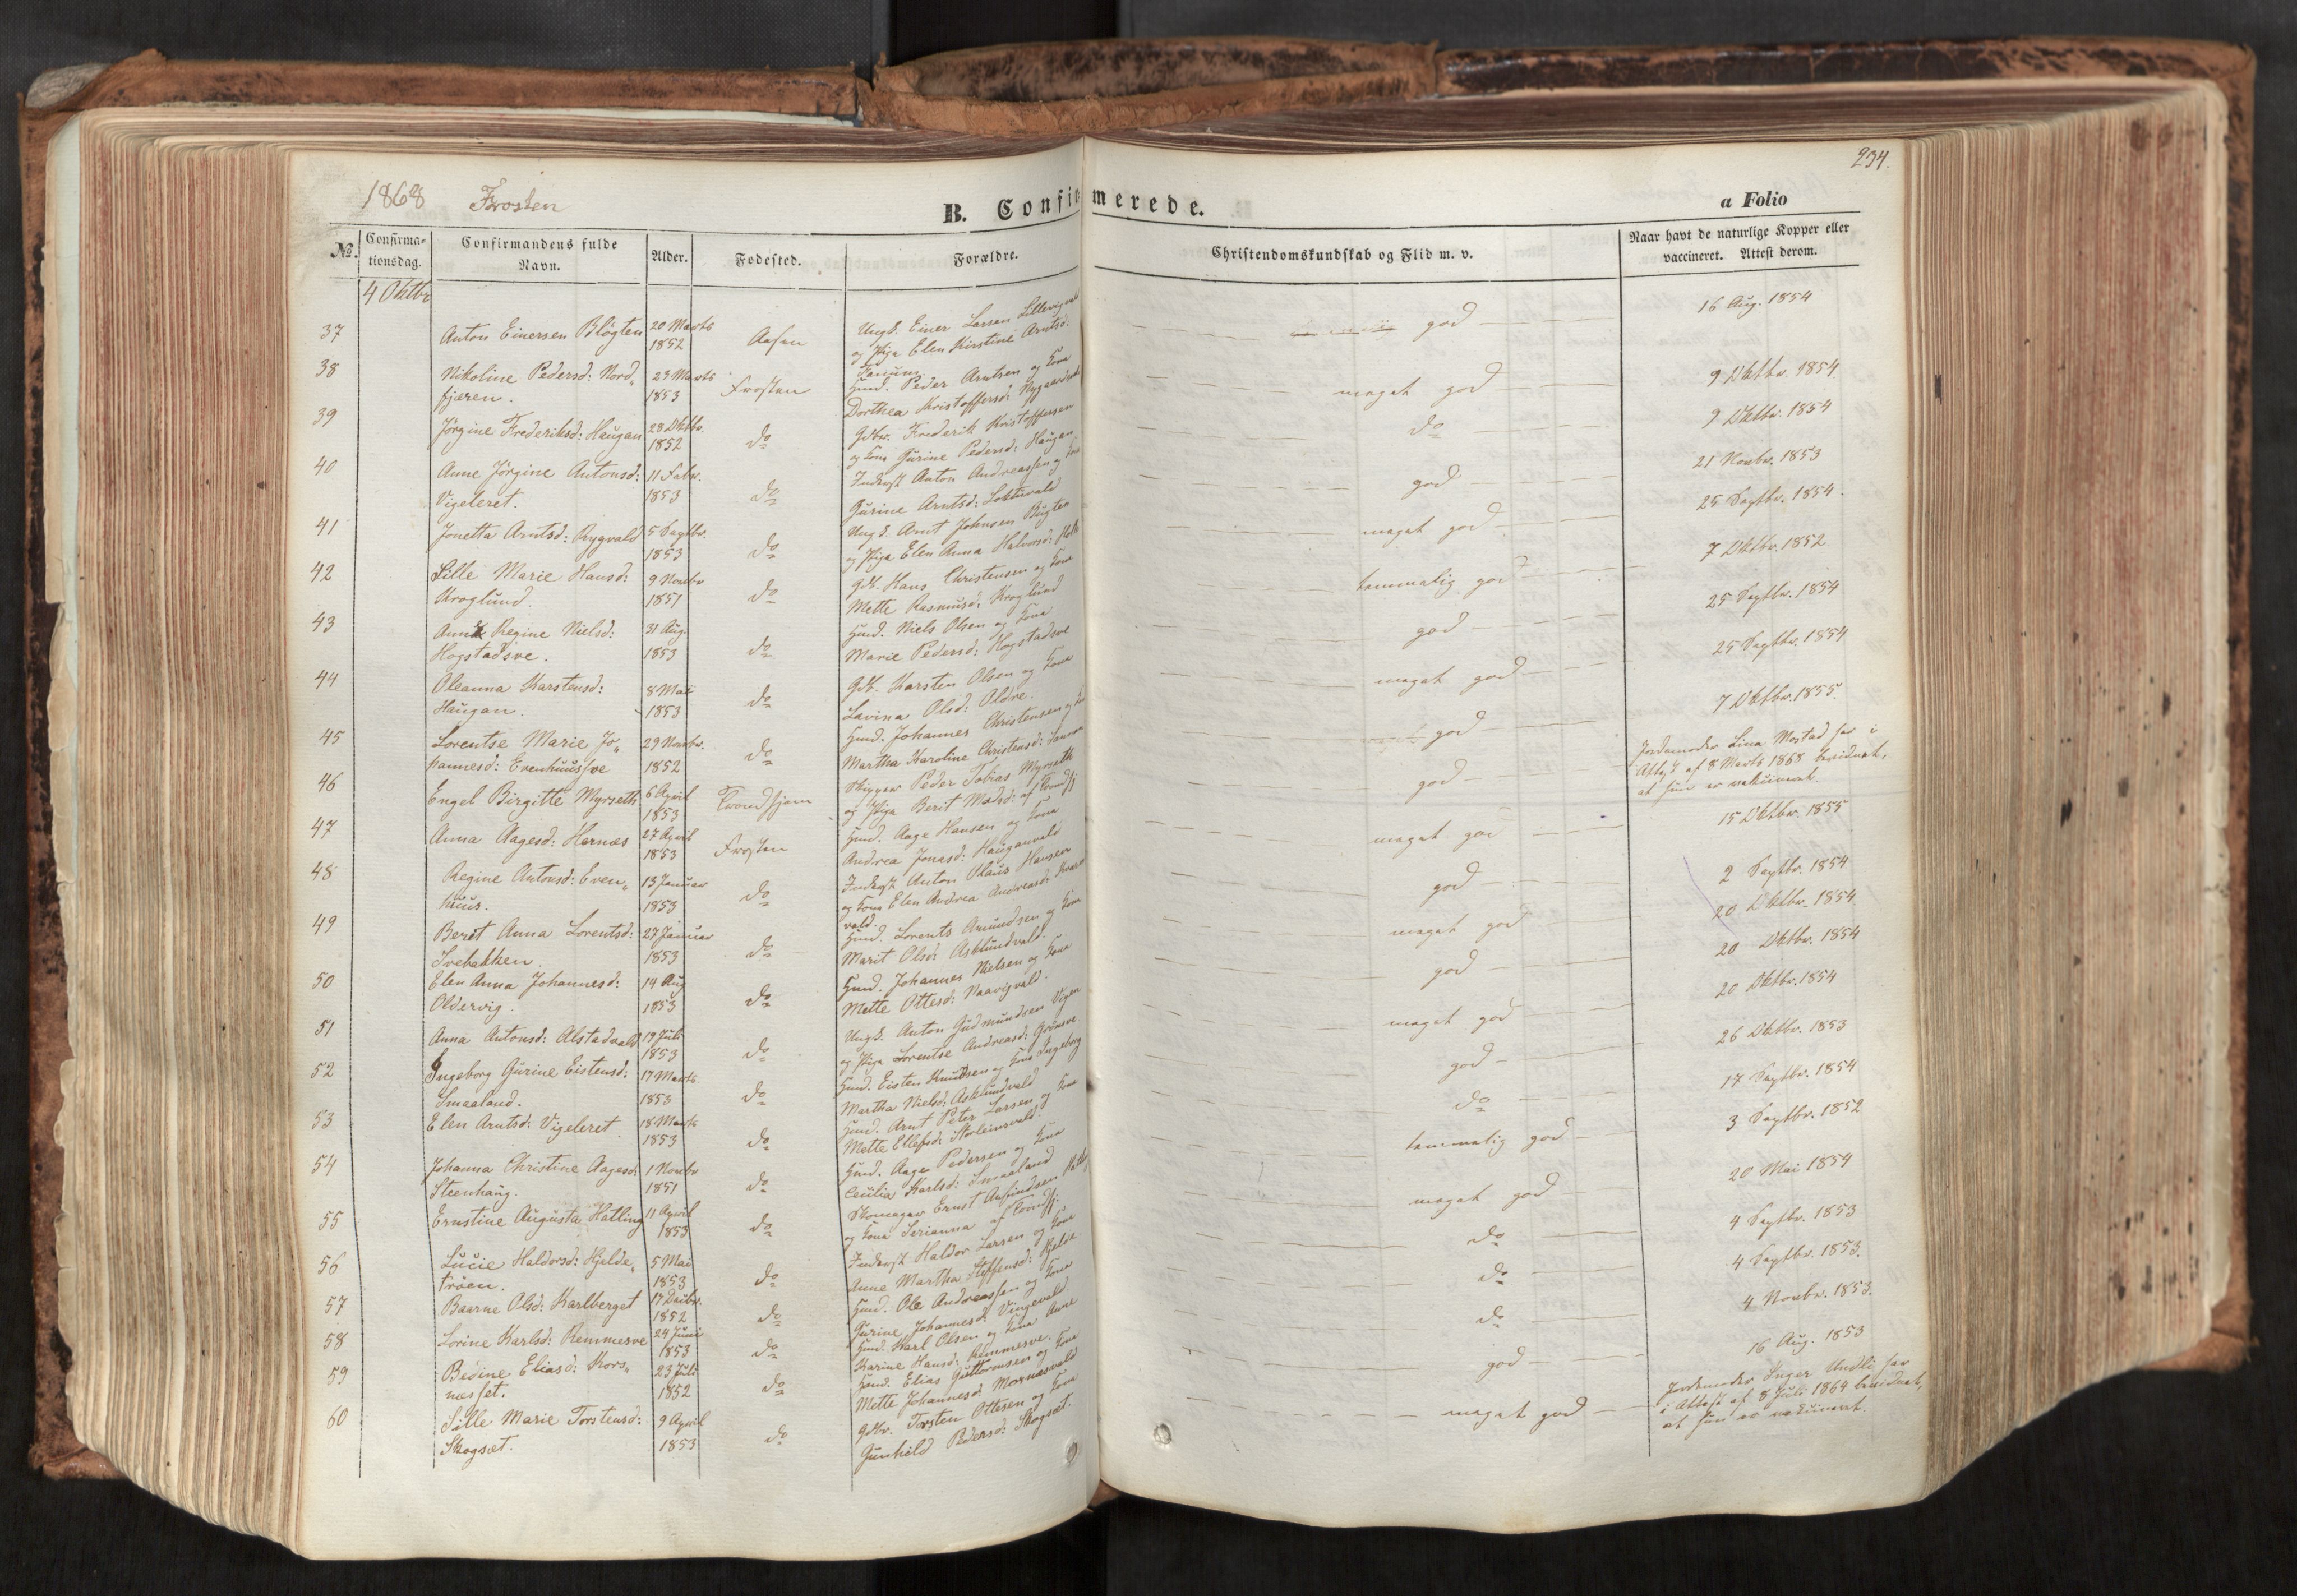 1868 Frosten
B. Confirmerede.
234.
a Folio
No. Confirmationsdag. Confirmandens fulde Navn. Alder. Fødested. Forældre. Christendomskundskab og Flid m. v. Naar havt de naturlige Kopper eller vaccineret. Attest derom.
4 Oktbr
37 Anton Einersen Bløgten 20 Marts 1852 Aasen Ungk. Einer Larsen og Pige Elen Kirstine Arntsd: god 16 Aug. 1854
38 Nikoline Pedersd: Nord„ fjæren. 23 Marts 1853 Frosten Huusmd. Peder Arntsen og Kone Dorthea Kristoffersd: meget god 9 Oktbr. 1854
39 Jørgine Frederiksd: Haugan 28 Oktbr. 1852 do Gdbr. Frederik Kristoffersen og Kone Gurine Pedersd: Haugan do 9 Oktbr. 1854
40 Anne Jørgine Antonsd: Vigeleret. 11 Febr. 1853 do Inderst Anton Andreassen og Kone Gurine Arntsd: god 21 Novbr. 1853
41 Jonetta Arntsd: Rygvald 5 Septbr. 1853 do Ungk. Arnt Johnsen Bugten og Pige Elen Anna Halvorsd: meget god 25 Septbr. 1854.
42 Sille Marie Hansd: Kroglund. 9 Novbr 1851 do Gdb. Hans Christensen og Kone Mette Rasmusd: Kroglund temmelig god 7 Oktbr. 1852
43 Anna Regine Nielsd: Hogstadsve. 31 Aug. 1853 do Husmd. Niels Olsen og Kone Marie Pedersd: Hogstadsve god 25 Septbr. 1854
44 Oleanna Karstensd: Haugan. 8 Mai 1853 do Gdb. Karsten Olsen og Kone Lavina Olsd: Oldre. meget god 25 Septbr. 1854
45 Lorentse Marie Jo„ hannesd: Evenhuussve 29 Novbr. 1852 do Husmd. Johannes Christensen og Kone Martha Karoline Christensd: god 7 Oktbr. 1855.
46 Engel Birgitte Myrseth 6 April 1853 Trondhjem Skipper Peder Tobias Myrseth og Pige Berit Matsd: af Trondhj god Jordemoder Lina Mostad har i Attest af 8 Marts 1868 bevidnet, at hun er vakcineret.
47 Anna Aagesd: Hernæs 27 April 1853 Frosten Husmd. Aage Hansen og Kone Andrea Jonasd: Hauganvald meget god 15 Oktbr. 1855
48 Regine Antonsd: Even„ huus. 13 Januar 1853 do Inderst Anton Olaus Hansen og Kone Elen Andrea Andreasd: god 2 Septbr. 1854
49 Berit Anna Lorentsd: Svebakken. 27 Januar 1853 do Husmd. Lorents Amundsen og Kone Marit Olsd: Asklundvald. meget god 20 Oktbr. 1854
50 Elen Anna Johannesd: Oldervig. 14 Aug 1853 do Husmd. Johannes Nielsen og Kone Mette Ottesd: Naavigvald. god 20 Oktbr. 1854
51 Anna Antonsd: Alstadvald 19 Juli 1853 do Ungk. Anton Gudmundsen Vigen og Pige Lorentse Andreasd: meget god 20 Oktbr. 1854
52 Ingeborg Gurine Eistensd: Smaaland. 17 Marts 1853 do Husmd. Eisten Knudsen og Kone Ingeborg Martha Nielsd: Asklundvald god 26 Oktbr. 1853
53 Elen Arntsd: Vigeleret 18 Marts 1853 do Husmd. Arnt Peter Larsen og Kone Mette Ellefsd: do 17 Septbr. 1854
54 Johanna Christine Aagesd: Steenhaug. 1 Novbr 1851 do Husmd. Aage Pedersen og Kone Cecilia Karlsd: Smaaland temmelig god 3 Septbr. 1852
55 Ernstine Augusta Hatling 11 April 1853 do Skomager Ernst Arfindsen og Kone Serianna af Trondhj: meget god 20 Mai 1854
56 Lucie Haldorsd: Hjelde„ trøen. 5 Mai 1853 do Inderst Haldor Larsen og Kone Anne Martha Steffensd: Hjelde do 4 Septbr. 1853
57 Baarne Olsd: Karlberget 17 Decbr. 1852 do Husmd. Ole Andreassen og Kone Gurine Johannesd: Vingevald do 4 Septbr. 1853.
58 Lorine Karlsd: Remmesve 24 Juni 1853 do Husmd. Karl Olsen og Kone Anne Karine Hansd: Remmesve. do 4 Novbr. 1853.
59 Bedine Eliasd: Kors„ næsset. 23 Juli 1852 do Husmd. Elias Guttormsen og Kone Mette Johannesd: god 16 Aug. 1853
60 Sille Marie Torstensd: Skogsæt. 9 April 1853 do Gdbr. Torsten Ottesen og Kone Gunhild Pedersd: Skogsæt. meget god Jordemoder Inger Undli har i Attest af 8 Juli 1864 bevidnet, at hun er vakcineret.